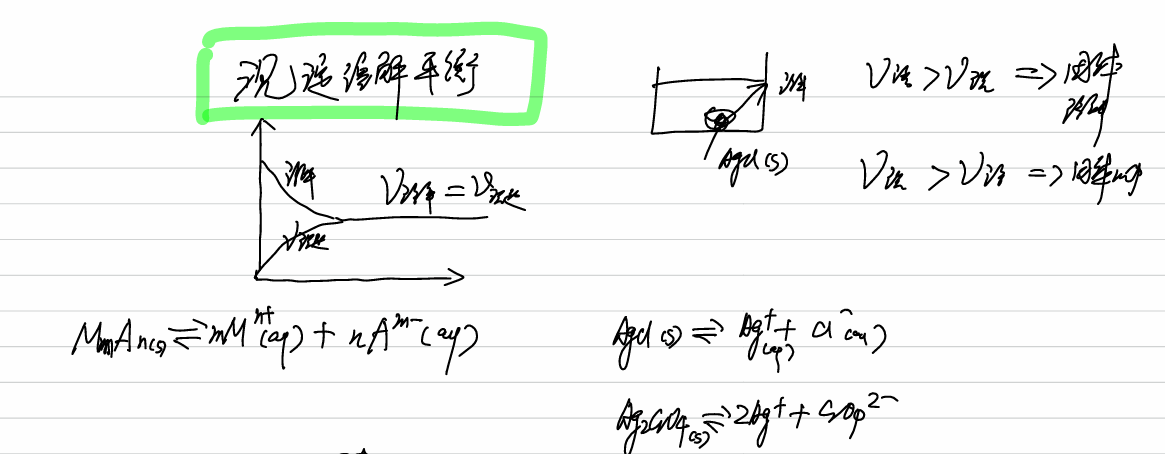 沉淀溶解平衡
溶解
V溶 > V沉 => 固体
溶解
AgCl(s)
V沉 > V溶 => 固体
溶解
V溶解 = V沉淀
V沉淀
MmAn(s) ⇌ mMⁿ⁺(aq) + nAᵐ⁻(aq)
AgCl(s) ⇌ Ag⁺(aq) + Cl⁻(aq)
Ag₂CrO₄(s) ⇌ 2Ag⁺ + CrO₄²⁻